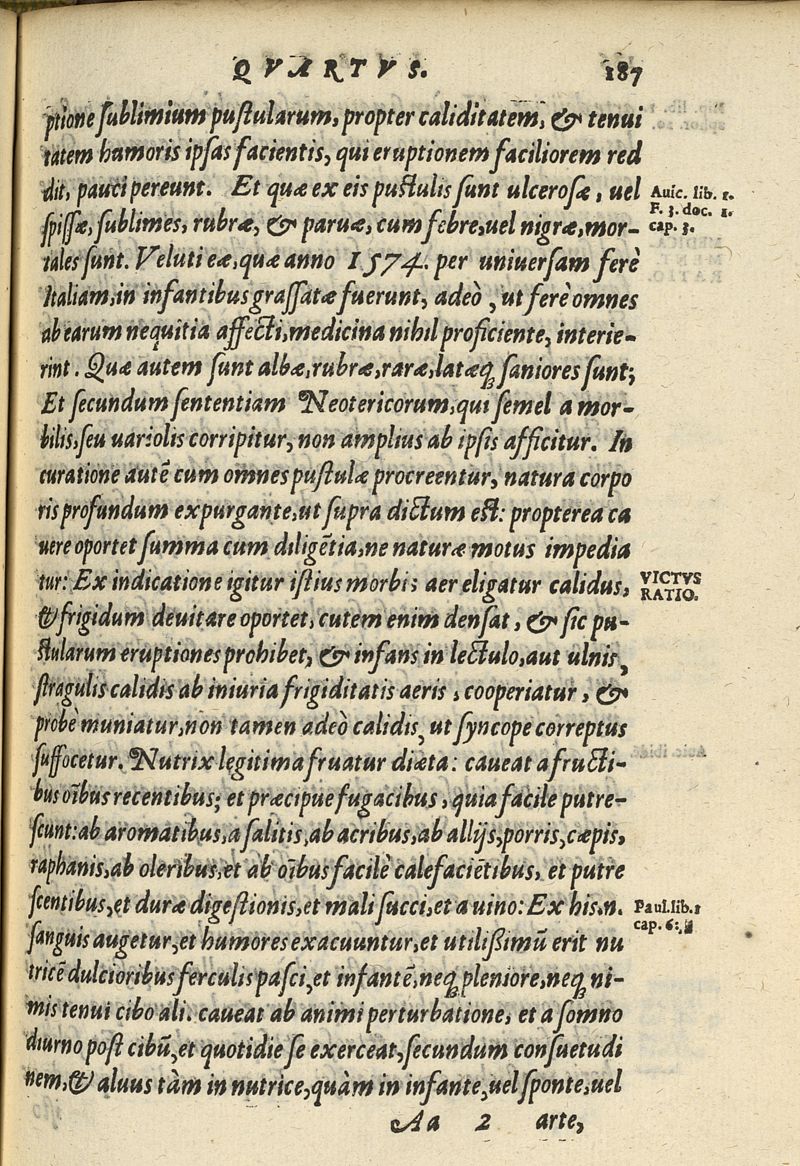 QVARTVS. 187
ptione sublimium pustularum, propter caliditatem, & tenui
tatem humoris ipsas facientis, qui eruptionem faciliorem red
dit, pauci pereunt. Et quæ ex eis pustulis sunt ulcerosæ, uel
Auic. lib. 1.
F. 3. doc. 1.
cap. 3.
spissæ, sublimes, rubræ, & paruæ, cum febre, uel nigræ, mor-
tales sunt. Veluti eæ, quæ anno 1574. per uniuersam ferè
Italiam, in infantibus grassatæ fuerunt, adeò, ut ferè omnes
ab earum nequitia affecti, medicina nihil proficiente, interie-
rint. Quæ autem sunt albæ, rubræ, raræ, latæq; saniores sunt;
Et secundum sententiam Neotericorum, qui semel a mor-
bilis, seu uariolis corripitur, non amplius ab ipsis afficitur. In
curatione autē cum omnes pustulæ procreentur, natura corpo
ris profundum expurgante, ut supra dictum est: propterea ca
uere oportet summa cum diligētia, ne naturæ motus impedia
tur: Ex indicatione igitur istius morbi; aer eligatur calidus,
VICTVS
RATIO.
& frigidum deuitare oportet, cutem enim densat, & sic pu-
stularum eruptiones prohibet, & infans in lectulo, aut ulnis,
stragulis calidis ab iniuria frigiditatis aeris, cooperiatur, &
probè muniatur, non tamen adeò calidis, ut syncope correptus
suffocetur. Nutrix legitima fruatur diæta: caueat a fructi-
bus oĩbus recentibus; et præcipue fugacibus, quia facile putre-
scunt: ab aromatibus, a salitis, ab acribus, ab allijs, porris, cæpis,
raphanis, ab oleribus, et ab oĩbus facilè calefaciētibus, et putre
scentibus, et duræ digestionis, et mali succi, et a uino: Ex his .n.
Paul. lib. 1
cap. 6:
sanguis augetur, et humores exacuuntur, et utilißimũ erit nu
tricē dulcioribus ferculis pasci, et infantē, neq; pleniore, neq; ni-
mis tenui cibo ali. caueat ab animi perturbatione, et a somno
diurno post cibũ, et quotidie se exerceat, secundum consuetudi
nem, & aluus tàm in nutrice, quàm in infante, uel sponte, uel
Aa 2 arte,